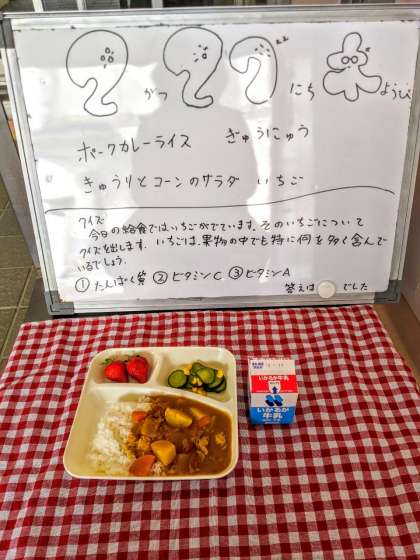 2 がつ 22 にち ようび
ポークカレーライス ぎゅうにゅう
きゅうりとコーンのサラダ いちご
クイズ
今日の給食ではいちごがでています。そのいちごについて
クイズを出します。いちごは、果物の中でも特に何を多く含んで
いるでしょう。
① たんぱく質 ② ビタミンC ③ ビタミンA
答えは でした
いかるが牛乳
いかるが
牛乳